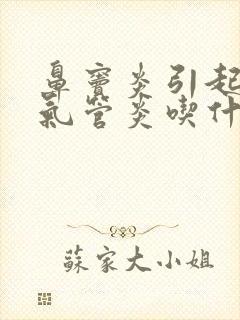 鼻窦炎引起
氣管炎喫什
蘇家大小姐